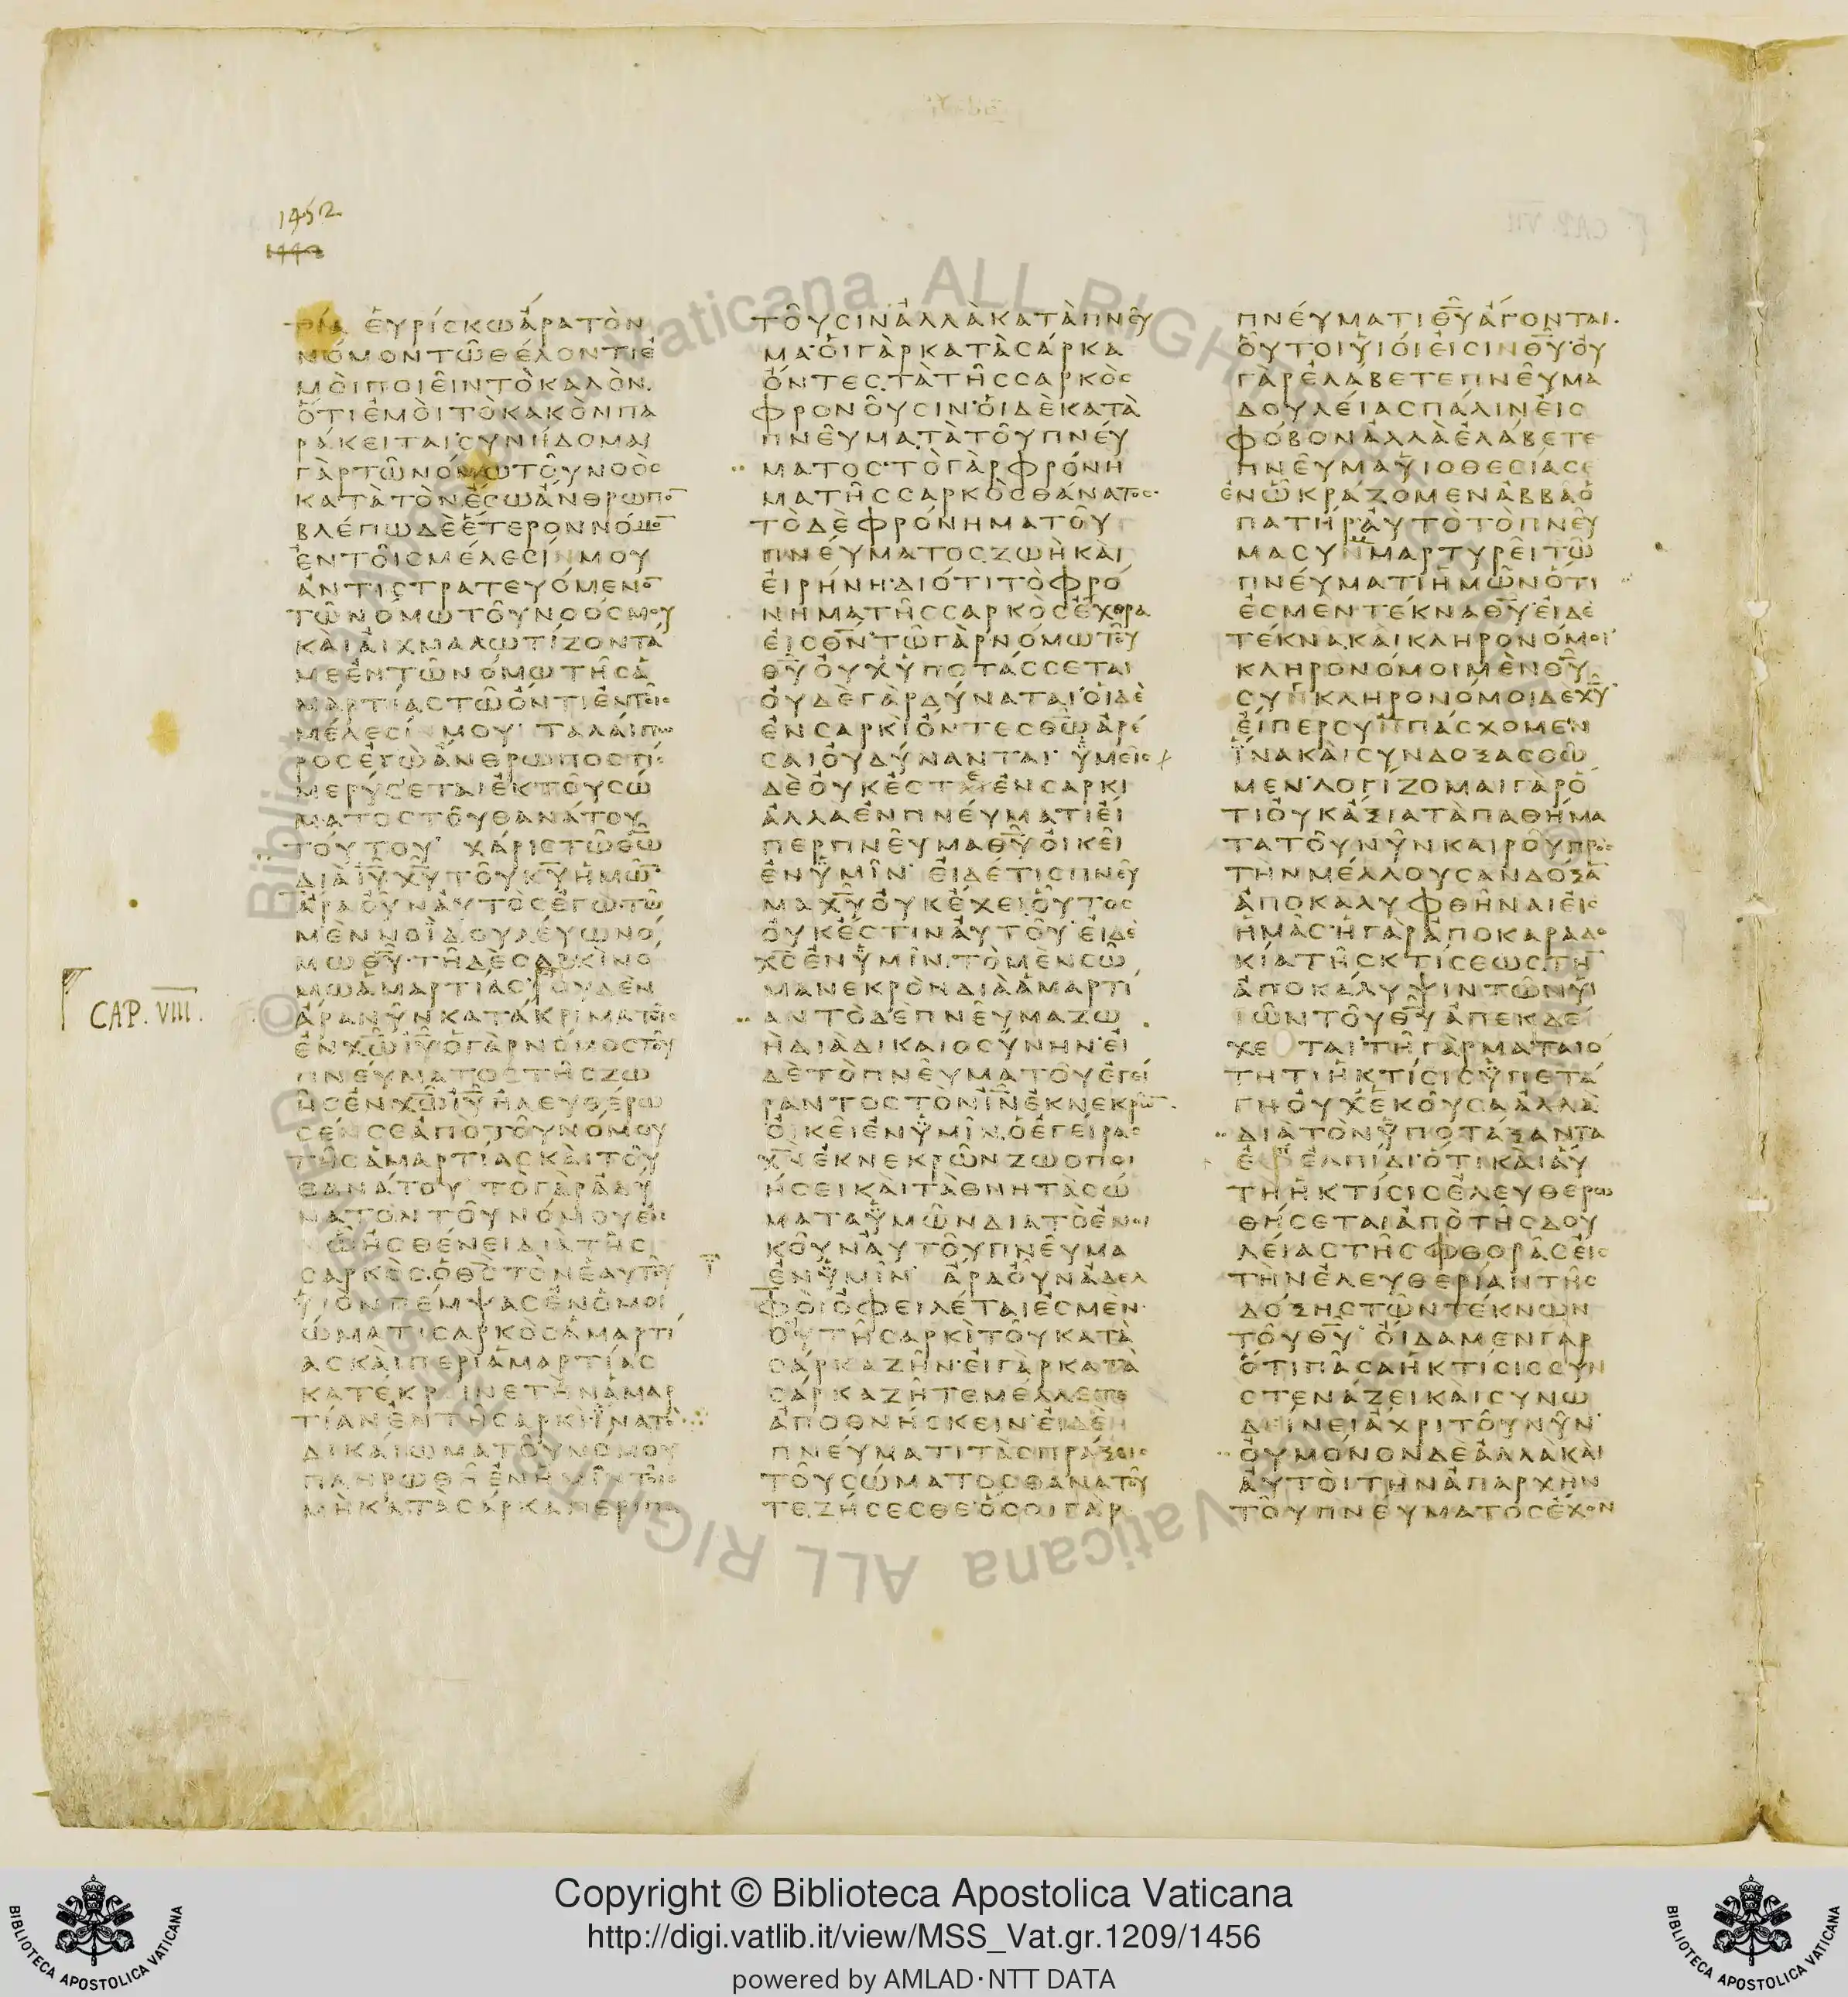 1452
1442
CAP. VIII.
ΤΙΑ ἙΥΡΊΣΚΩἌΡΑΤῸΝ
ΝΌΜΟΝΤΩ͂ΘΈΛΟΝΤΙἘ
ΜΟῚΠΟΙΕΙ͂ΝΤῸΚΑΛῸΝ.
ὍΤΙἘΜΟῚΤῸΚΑΚῸΝΠΑ
ΡΆΚΕΙΤΑΙ·ΣΥΝΉΔΟΜΑΙ
ΓᾺΡΤΩ͂ΝΌΜΩΤΟΥ͂ΝΟῸΣ
ΚΑΤᾺΤῸΝἜΣΩἌΝΘΡΩΠΟ̅
ΒΛΈΠΩΔῈἝΤΕΡΟΝΝΌΜΟ̅
ἘΝΤΟΙ͂ΣΜΈΛΕΣΊΝΜΟΥ
ἈΝΤΙΣΤΡΑΤΕΥΌΜΕΝΟ̅
ΤΩ͂ΝΌΜΩΤΟΥ͂ΝΟΌΣΜΟΥ
ΚΑῚΑἸΧΜΑΛΩΤΊΖΟΝΤΆ
ΜΕἘΝΤΩ͂ΝΌΜΩΤΗ͂ΣἉ
ΜΑΡΤΊΑΣΤΩ͂ὌΝΤΙἘΝΤΟΙ͂Σ
ΜΈΛΕΣΊΝΜΟΥ· ΤΑΛΑΊΠΩ
ΡΟΣἘΓῺἌΝΘΡΩΠΟΣΤΊΣ
ΜΕΡΎΣΕΤΑΙἘΚΤΟΥ͂ΣΏ
ΜΑΤΟΣΤΟΥ͂ΘΑΝΆΤΟΥ
ΤΟΎΤΟΥ· ΧΆΡΙΣΤΩ͂Θ̅Ω̅
ΔΙᾺΙ̅Υ̅Χ̅Υ̅ΤΟΥ͂Κ̅Υ̅ἩΜΩ͂̅
ἌΡΑΟΥ͂̓ΝΑΥ̓ΤῸΣἘΓῺΤΩ͂
ΜῈΝΝΟΪ̀ΔΟΥΛΕΎΩΝΌ
ΜΩΘ̅Υ̅·ΤΗ͂ΔῈΣΑΡΚῚΝΌ
ΜΩἉΜΑΡΤΊΑΣ·ΟΥ̓ΔῈΝ
ἌΡΑΝΥ͂ΝΚΑΤΆΚΡΙΜΑΤΟΙ͂Σ
ἘΝΧ̅Ω̅Ι̅Υ̅·ὉΓᾺΡΝΌΜΟΣΤΟΥ͂
ΠΝΕΎΜΑΤΟΣΤΗ͂ΣΖΩ
Η͂ΣἘΝΧ̅Ω̅Ι̅Υ̅ἨΛΕΥΘΈΡΩ
ΣΈΝΣΕἈΠῸΤΟΥ͂ΝΌΜΟΥ
ΤΗ͂ΣἉΜΑΡΤΊΑΣΚΑῚΤΟΥ͂
ΘΑΝΆΤΟΥ· ΤῸΓᾺΡἈΔΎ
ΝΑΤΟΝΤΟΥ͂ΝΌΜΟΥἘΝ
ΩΗ͂̔ΣΘΈΝΕΙΔΙᾺΤΗ͂Σ
ΣΑΡΚῸΣ.ὉΘ̅Σ̅ΤῸΝἙΑΥΤΟΥ͂
ΥἹῸΝΠΈΜΨΑΣἘΝὉΜΟΙ
ΏΜΑΤΙΣΑΡΚῸΣἉΜΑΡΤΊ
ΑΣΚΑῚΠΕΡῚἉΜΑΡΤΊΑΣ
ΚΑΤΈΚΡΕΙΝΕΤῊΝἉΜΑΡ
ΤΊΑΝἘΝΤΗ͂ΣΑΡΚῚ·ἽΝΑΤῸ
ΔΙΚΑΊΩΜΑΤΟΥ͂ΝΌΜΟΥ
ΠΛΗΡΩΘΗ͂ἘΝἩΜΙ͂ΝΤΟΙ͂Σ
ΜῊΚΑΤᾺΣΆΡΚΑΠΕΡΙΠΑ
ΤΟΥ͂ΣΙΝἈΛΛᾺΚΑΤᾺΠΝΕΥ͂
ΜΑ·ΟἹΓᾺΡΚΑΤᾺΣΆΡΚΑ
ὌΝΤΕΣ.ΤᾺΤΗ͂ΣΣΑΡΚῸΣ
ΦΡΟΝΟΥ͂ΣΙΝ·ΟἹΔῈΚΑΤᾺ
ΠΝΕΥ͂ΜΑ.ΤᾺΤΟΥ͂ΠΝΕΎ
ΜΑΤΟΣ·ΤῸΓᾺΡΦΡΌΝΗ
ΜΑΤΗ͂ΣΣΑΡΚῸΣΘΆΝΑΤΟΣ·
ΤῸΔῈΦΡΌΝΗΜΑΤΟΥ͂
ΠΝΕΎΜΑΤΟΣ.ΖΩῊΚΑῚ
ΕἸΡΉΝΗ·ΔΙΌΤΙΤῸΦΡΌ
ΝΗΜΑΤΗ͂ΣΣΑΡΚῸΣἜΧΘΡΑ
ΕἸΣΘ̅Ν̅·ΤΩ͂ΓᾺΡΝΌΜΩΤΟΥ͂
Θ̅Υ̅ΟΥ̓ΧὙΠΟΤΆΣΣΕΤΑΙ
ΟΥ̓ΔῈΓᾺΡΔΎΝΑΤΑΙ·ΟἹΔῈ
ἘΝΣΑΡΚῚὌΝΤΕΣΘ̅Ω̅ἈΡΈ
ΣΑΙΟΥ̓ΔΎΝΑΝΤΑΙ· ὙΜΕΙ͂Σ
ΔῈΟΥ̓ΚἘΣΤῈἘΝΣΑΡΚῚ
ἈΛΛᾺἘΝΠΝΕΎΜΑΤΙΕἼ
ΠΕΡΠΝΕΥ͂ΜΑΘ̅Υ̅ΟἸΚΕΙ͂
ἘΝὙΜΙ͂Ν· ΕἸΔΈΤΙΣΠΝΕΥ͂
ΜΑΧ̅Υ̅ΟΥ̓ΚἜΧΕΙ.ΟΥ͂̔ΤΟΣ
ΟΥ̓ΚἜΣΤΙΝΑΥ̓ΤΟΥ͂·ΕἸΔῈ
Χ̅Σ̅ἘΝὙΜΙ͂Ν.ΤῸΜῈΝΣΩ͂
ΜΑΝΕΚΡῸΝΔΙᾺἉΜΑΡΤΊ
ΑΝΤῸΔῈΠΝΕΥ͂ΜΑΖΩ
ῊΔΙᾺΔΙΚΑΙΟΣΎΝΗΝ·ΕἸ
ΔῈΤῸΠΝΕΥ͂ΜΑΤΟΥ͂ἘΓΕΊ
ΡΑΝΤΟΣΤῸΝΙ̅Ν̅ἘΚΝΕΚΡΩ͂̅
ΟἸΚΕΙ͂ἘΝὙΜΙ͂Ν.ὉἘΓΕΊΡΑΣ
Χ̅Ν̅ἘΚΝΕΚΡΩ͂ΝΖΩΟΠΟΙ
ΉΣΕΙΚΑῚΤᾺΘΝΗΤᾺΣΏ
ΜΑΤΑὙΜΩ͂ΝΔΙΑΤῸἘΝΟΙ
ΚΟΥ͂ΝΑΥ̓ΤΟΥ͂ΠΝΕΥ͂ΜΑ
ἘΝὙΜΙ͂Ν· ἌΡΑΟΥ͂̓ΝἈΔΕΛ
ΦΟῚὈΦΕΙΛΈΤΑΙἘΣΜῈΝ·
ΟΥ̓ΤΗ͂ΣΑΡΚῚΤΟΥ͂ΚΑΤᾺ
ΣΆΡΚΑΖΗ͂Ν·ΕἸΓᾺΡΚΑΤᾺ
ΣΆΡΚΑΖΗ͂ΤΕΜΈΛΛΕΤΕ
ἈΠΟΘΝΉΣΚΕΙΝ·ΕἸΔῈ
ΠΝΕΎΜΑΤΙΤᾺΣΠΡΆΞΕΙΣ
ΤΟΥ͂ΣΏΜΑΤΟΣΘΑΝΑΤΟΥ͂
ΤΕ.ΖΉΣΕΣΘΕ·ὍΣΟΙΓᾺΡ
ΠΝΕΎΜΑΤΙΘ̅Υ̅ἌΓΟΝΤΑΙ.
ΟΥ͂̔ΤΟΙΥἹΟΊΕἸΣΙΝΘ̅Υ̅·ΟΥ̓
ΓᾺΡἘΛΆΒΕΤΕΠΝΕΥ͂ΜΑ
ΔΟΥΛΕΊΑΣΠΆΛΙΝΕἸΣ
ΦΌΒΟΝἈΛΛᾺἘΛΆΒΕΤΕ
ΠΝΕΥ͂ΜΑΥἹΟΘΕΣΊΑΣ
ἘΝΩ͂̔ΚΡΆΖΟΜΕΝἈΒΒᾺὉ
ΠΑΤΉΡ·ΑΥ̓ΤῸΤῸΠΝΕΥ͂
ΜΑΣΥΜΜΑΡΤΥΡΕΙ͂ΤΩ͂
ΠΝΕΎΜΑΤΙἩΜΩ͂ΝὍΤΙ
ἘΣΜῈΝΤΈΚΝΑΘ̅Υ̅·ΕἸΔῈ
ΤΈΚΝΑ.ΚΑῚΚΛΗΡΟΝΌΜΟΙ·
ΚΛΗΡΟΝΌΜΟΙΜῈΝΘ̅Υ̅
ΣΥΓΚΛΗΡΟΝΟΜΟΙΔΕΧ̅Υ̅·
ΕἼΠΕΡΣΥΜΠΆΣΧΟΜΕΝ
ἽΝΑΚΑῚΣΥΝΔΟΞΑΣΘΩ͂
ΜΕΝ·ΛΟΓΊΖΟΜΑΙΓᾺΡὍ
ΤΙΟΥ̓ΚἌΞΙΑΤᾺΠΑΘΉΜΑ
ΤΑΤΟΥ͂ΝΥ͂ΝΚΑΙΡΟΥ͂ΠΡῸΣ
ΤῊΝΜΈΛΛΟΥΣΑΝΔΌΞΑ̅
ἈΠΟΚΑΛΥΦΘΗ͂ΝΑΙΕἸΣ
ἩΜΑ͂Σ·ἩΓᾺΡἈΠΟΚΑΡΑΔΟ
ΚΊΑΤΗ͂ΣΚΤΊΣΕΩΣ.ΤῊ̅
ἈΠΟΚΆΛΥΨΙΝΤΩ͂ΝΥἹ
ΩΝΤΟΥ͂Θ̅Υ̅ἈΠΕΚΔΕ
ΧΕ ΤΑΙ·ΤΗ͂ΓᾺΡΜΑΤΑΙΌ
ΤΗΤΙἩΚΤΊΣΙΣὙΠΕΤΆ
ΓΗΟΥ̓ΧἙΚΟΥ͂ΣΑἈΛΛᾺ
ΔΙΑΤΟΝὙΠΟΤΆΞΑΝΤΑ
ἘΦἙΛΠΊΔΙ·ὍΤΙΚΑῚΑΥ̓
ΤῊἩΚΤΊΣΙΣἘΛΕΥΘΕΡΩ
ΘΉΣΕΤΑΙἈΠῸΤΗ͂ΣΔΟΥ
ΛΕΊΑΣΤΗ͂ΣΦΘΟΡΑ͂ΣΕἸΣ
ΤῊΝἘΛΕΥΘΕΡΊΑΝΤΗ͂Σ
ΔΌΞΗΣΤΩ͂ΝΤΈΚΝΩΝ
ΤΟΥ͂Θ̅Υ̅· ΟἼΔΑΜΕΝΓᾺΡ
ὍΤΙΠΑ͂ΣΑἩΚΤΊΣΙΣΣΥΝ
ΣΤΕΝΆΖΕΙΚΑῚΣΥΝΩ
ΔΕΊΝΕΙἌΧΡΙΤΟΥ͂ΝΥ͂Ν·
ΟΥ̓ΜΌΝΟΝΔΕἈΛΛᾺΚΑῚ
ΑΥ̓ΤΟῚΤῊΝἈΠΑΡΧῊΝ
ΤΟΥ͂ΠΝΕΎΜΑΤΟΣἜΧΟΝ
© Biblioteca Apostolica Vaticana ALL RIGHTS
Copyright © Biblioteca Apostolica Vaticana
http://digi.vatlib.it/view/MSS_Vat.gr.1209/1456
powered by AMLAD·NTT DATA
BIBLIOTECA APOSTOLICA VATICANA
BIBLIOTECA APOSTOLICA VATICANA